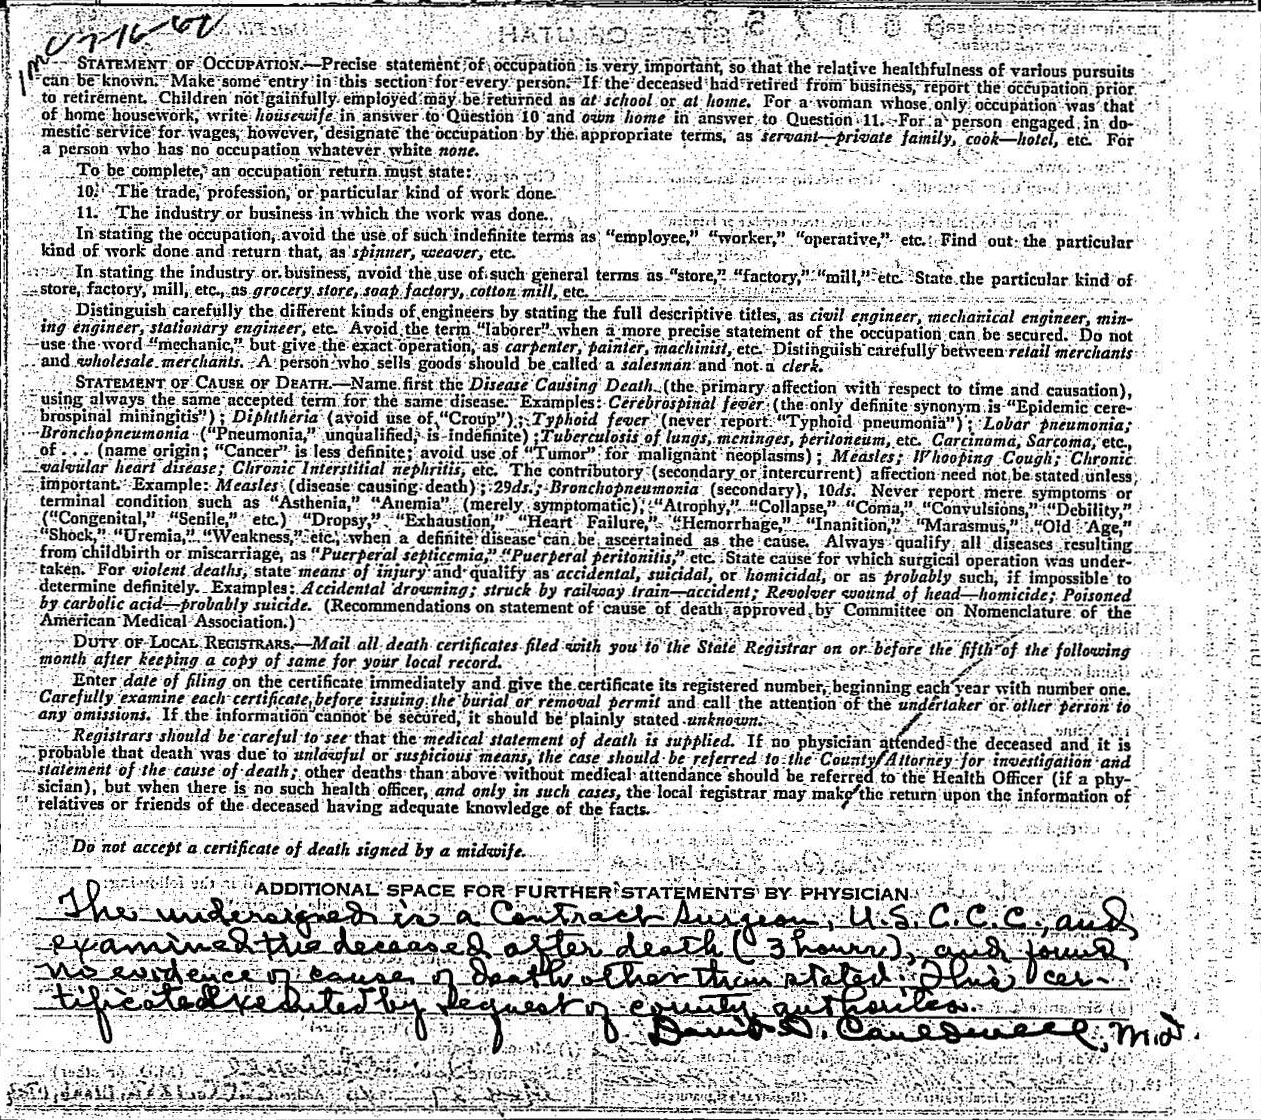 7-16-
STATEMENT OF OCCUPATION.—Precise statement of occupation is very important, so that the relative healthfulness of various pursuits
can be known. Make some entry in this section for every person. If the deceased had retired from business, report the occupation prior
to retirement. Children not gainfully employed may be returned as at school or at home. For a woman whose only occupation was that
of home housework, write housewife in answer to Question 10 and own home in answer to Question 11. For a person engaged in do-
mestic service for wages, however, designate the occupation by the appropriate terms, as servant—private family, cook—hotel, etc. For
a person who has no occupation whatever white none.
To be complete, an occupation return must state:
10. The trade, profession, or particular kind of work done.
11. The industry or business in which the work was done.
In stating the occupation, avoid the use of such indefinite terms as "employee," "worker," "operative," etc. Find out the particular
kind of work done and return that, as spinner, weaver, etc.
In stating the industry or business, avoid the use of such general terms as "store," "factory," "mill," etc. State the particular kind of
store, factory, mill, etc., as grocery store, soap factory, cotton mill, etc.
Distinguish carefully the different kinds of engineers by stating the full descriptive titles, as civil engineer, mechanical engineer, min-
ing engineer, stationary engineer, etc. Avoid the term "laborer" when a more precise statement of the occupation can be secured. Do not
use the word "mechanic," but give the exact operation, as carpenter, painter, machinist, etc. Distinguish carefully between retail merchants
and wholesale merchants. A person who sells goods should be called a salesman and not a clerk.
STATEMENT OF CAUSE OF DEATH.—Name first the Disease Causing Death (the primary affection with respect to time and causation),
using always the same accepted term for the same disease. Examples: Cerebrospinal fever (the only definite synonym is "Epidemic cere-
brospinal miningitis"); Diphtheria (avoid use of "Croup"); Typhoid fever (never report "Typhoid pneumonia"); Lobar pneumonia;
Bronchopneumonia ("Pneumonia," unqualified, is indefinite); Tuberculosis of lungs, meninges, peritoneum, etc. Carcinoma, Sarcoma, etc.,
of . . . (name origin; "Cancer" is less definite; avoid use of "Tumor" for malignant neoplasms); Measles; Whooping Cough; Chronic
valvular heart disease; Chronic Interstitial nephritis, etc. The contributory (secondary or intercurrent) affection need not be stated unless
important. Example: Measles (disease causing death); 29ds.; Bronchopneumonia (secondary), 10ds. Never report mere symptoms or
terminal condition such as "Asthenia," "Anemia" (merely symptomatic), "Atrophy," "Collapse," "Coma," "Convulsions," "Debility,"
("Congenital," "Senile," etc.) "Dropsy," "Exhaustion," "Heart Failure," "Hemorrhage," "Inanition," "Marasmus," "Old Age,"
"Shock," "Uremia," "Weakness," etc., when a definite disease can be ascertained as the cause. Always qualify all diseases resulting
from childbirth or miscarriage, as "Puerperal septicemia," "Puerperal peritonitis," etc. State cause for which surgical operation was under-
taken. For violent deaths, state means of injury and qualify as accidental, suicidal, or homicidal, or as probably such, if impossible to
determine definitely. Examples: Accidental drowning; struck by railway train—accident; Revolver wound of head—homicide; Poisoned
by carbolic acid—probably suicide. (Recommendations on statement of cause of death approved by Committee on Nomenclature of the
American Medical Association.)
DUTY OF LOCAL REGISTRARS.—Mail all death certificates filed with you to the State Registrar on or before the fifth of the following
month after keeping a copy of same for your local record.
Enter date of filing on the certificate immediately and give the certificate its registered number, beginning each year with number one.
Carefully examine each certificate before issuing the burial or removal permit and call the attention of the undertaker or other person to
any omissions. If the information cannot be secured, it should be plainly stated unknown.
Registrars should be careful to see that the medical statement of death is supplied. If no physician attended the deceased and it is
probable that death was due to unlawful or suspicious means, the case should be referred to the County Attorney for investigation and
statement of the cause of death; other deaths than above without medical attendance should be referred to the Health Officer (if a phy-
sician), but when there is no such health officer, and only in such cases, the local registrar may make the return upon the information of
relatives or friends of the deceased having adequate knowledge of the facts.
Do not accept a certificate of death signed by a midwife.
ADDITIONAL SPACE FOR FURTHER STATEMENTS BY PHYSICIAN
The undersigned is a Contract Surgeon, U.S.C.C.C., and
examined the deceased after death (3 hours), and found
no evidence of causes of death other than stated. This cer-
tificate executed by request of county authorities.
David O. Cauldwell, M.D.